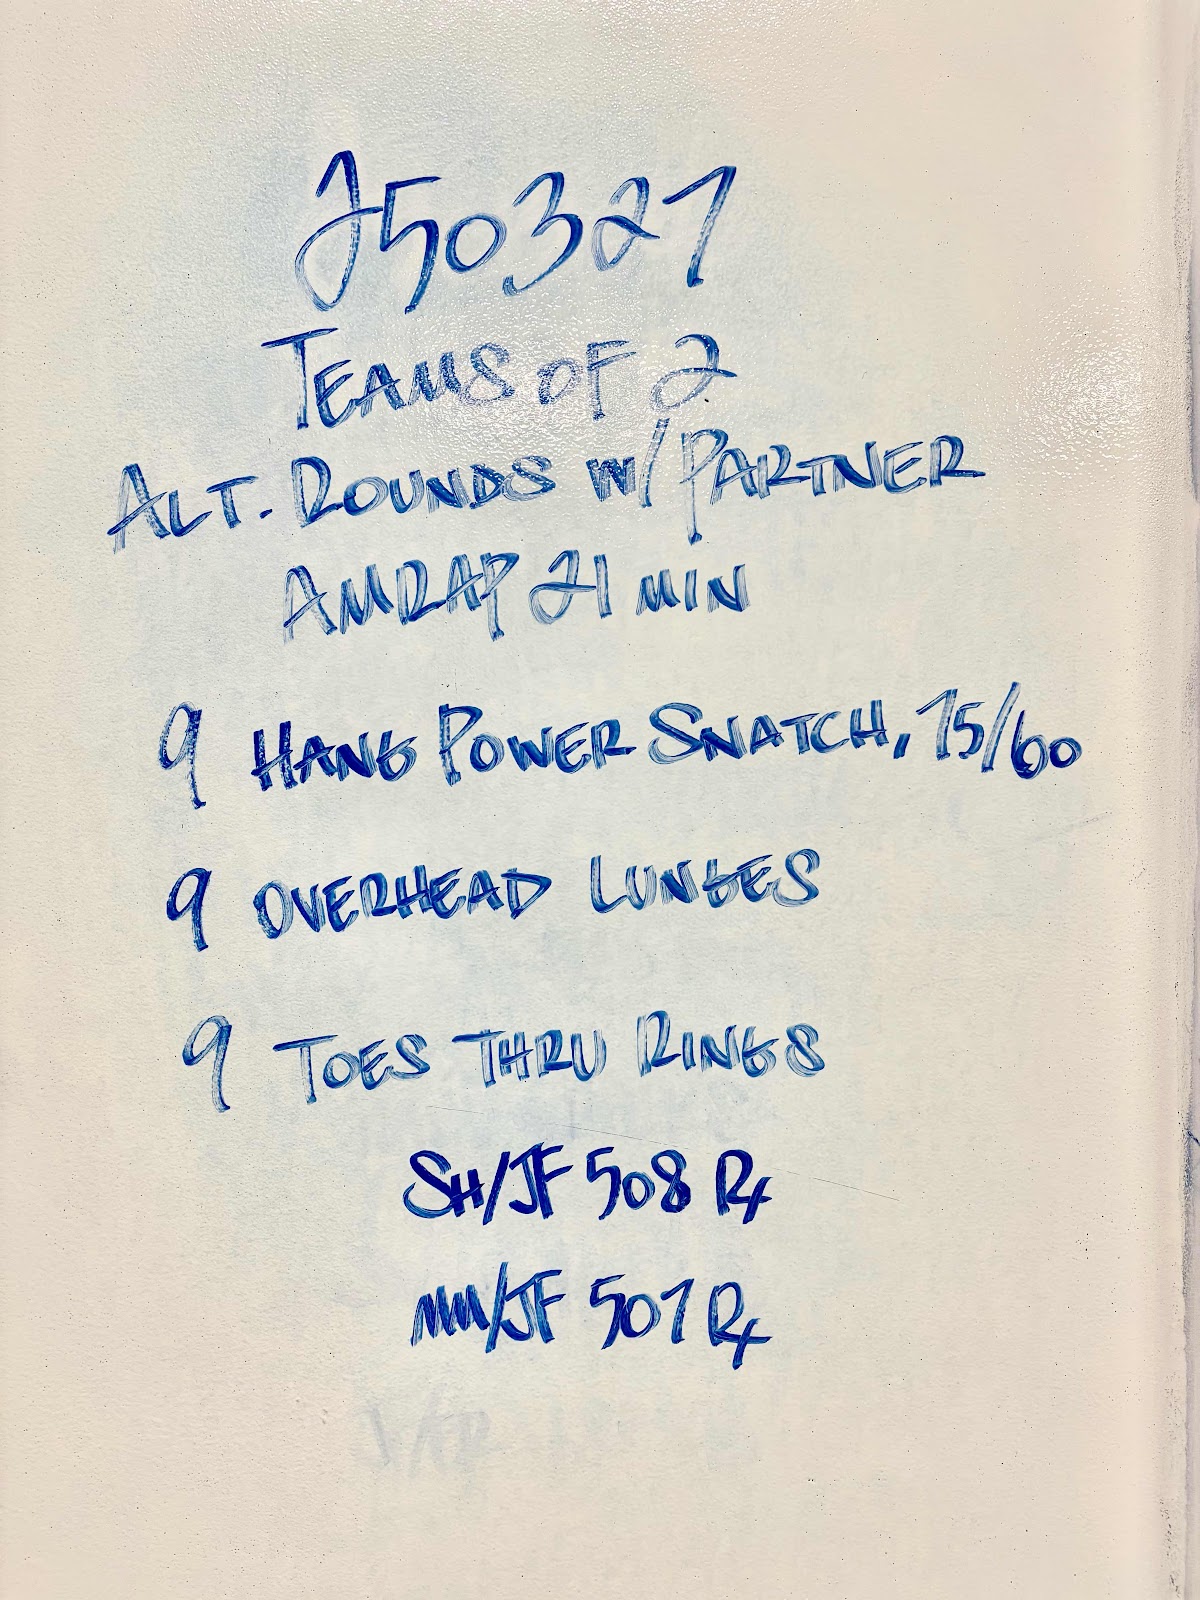 250327
TEAMS OF 2
ALT. ROUNDS W/ PARTNER
AMRAP 21 MIN
9 HANG POWER SNATCH, 75/60
9 OVERHEAD LUNGES
9 TOES THRU RINGS
SH/JF 508 Rx
MM/JF 507 Rx